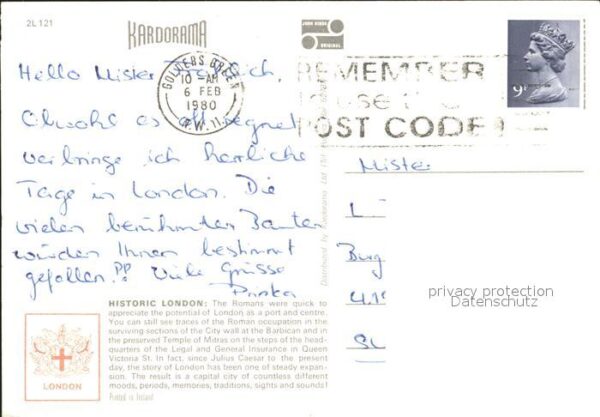 2L 121
KARDORAMA
JOHN HINDE
ORIGINAL
GOLDERS GREEN
10 - AM
6 FEB
1980
N.W. 11.
REMEMBER
to use the
POST CODE
9P
Hello Mister
Obwohl es oft regnet
verbringe ich herrliche
Tage in London. Die
vielen berühmten Bauten
würden Ihnen bestimmt
gefallen!! Viele Grüsse
Distributed by Kardorama Ltd.
Mister
L
Burg
SL
privacy protection
Datenschutz
HISTORIC LONDON: The Romans were quick to
appreciate the potential of London as a port and centre.
You can still see traces of the Roman occupation in the
surviving sections of the City wall at the Barbican and in
the preserved Temple of Mitras on the steps of the head-
quarters of the Legal and General Insurance in Queen
Victoria St. In fact, since Julius Caesar to the present
day, the story of London has been one of steady expan-
sion. The result is a capital city of countless different
moods, periods, memories, traditions, sights and sounds!
Printed in Ireland
LONDON